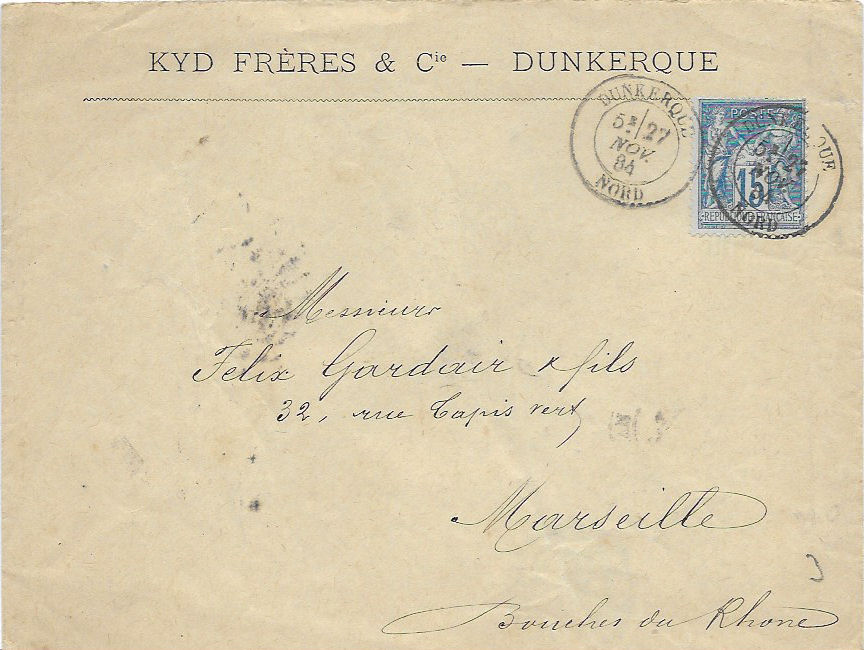 KYD FRÈRES & Cie — DUNKERQUE
DUNKERQUE
5E 27
NOV.
84
NORD
POSTES
15
REPUBLIQUE FRANÇAISE
DUNKERQUE
5E 27
NOV.
NORD
Messieurs
Felix Gardair & fils
32, rue Tapis vert
Marseille
Bouches du Rhone